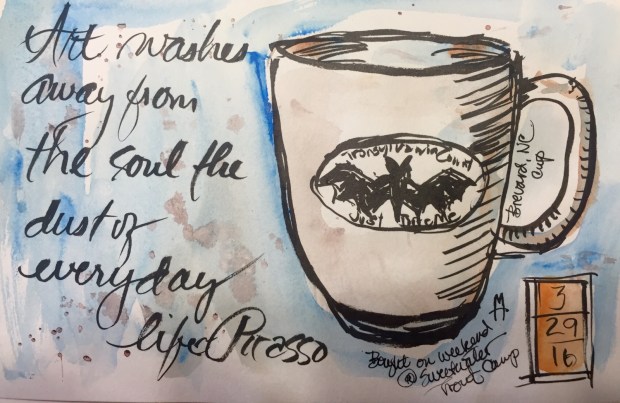 Art washes
away from
the soul the
dust of
everyday
life Picasso
Just Bite Me
Brevard, NC
Cup
Bought on weekend
@ Sweetwater
Trout Camp
3
29
16